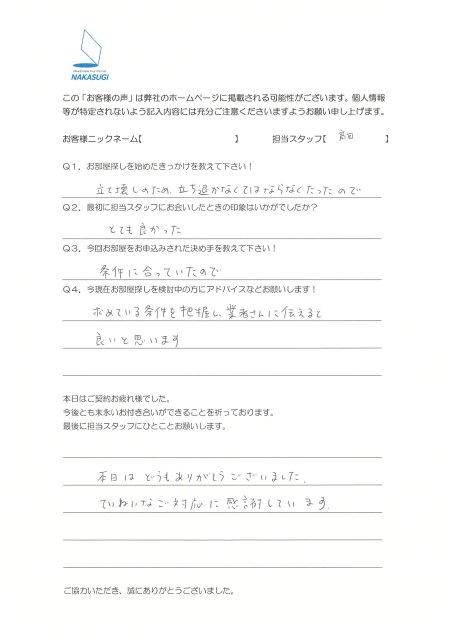 NAKASUGI
この「お客様の声」は弊社のホームページに掲載される可能性がございます。個人情報
等が特定されないよう記入内容には充分ご注意くださいますようお願い申し上げます。
お客様ニックネーム【 】 担当スタッフ【 】
Q1．お部屋探しを始めたきっかけを教えて下さい！
立て壊しのため、立ち退かなくてはならなくなったので
Q2．最初に担当スタッフにお会いしたときの印象はいかがでしたか？
とても良かった
Q3．今回お部屋をお申込みされた決め手を教えて下さい！
条件に合っていたので
Q4．今現在お部屋探しを検討中の方にアドバイスなどお願いします！
求めている条件を把握し、業者さんに伝えると
良いと思います
本日はご契約お疲れ様でした。
今後とも末永いお付き合いができることを祈っております。
最後に担当スタッフにひとことお願いします。
本日は どうもありがとうございました。
ていねいなご対応に感謝しています。
ご協力いただき、誠にありがとうございました。